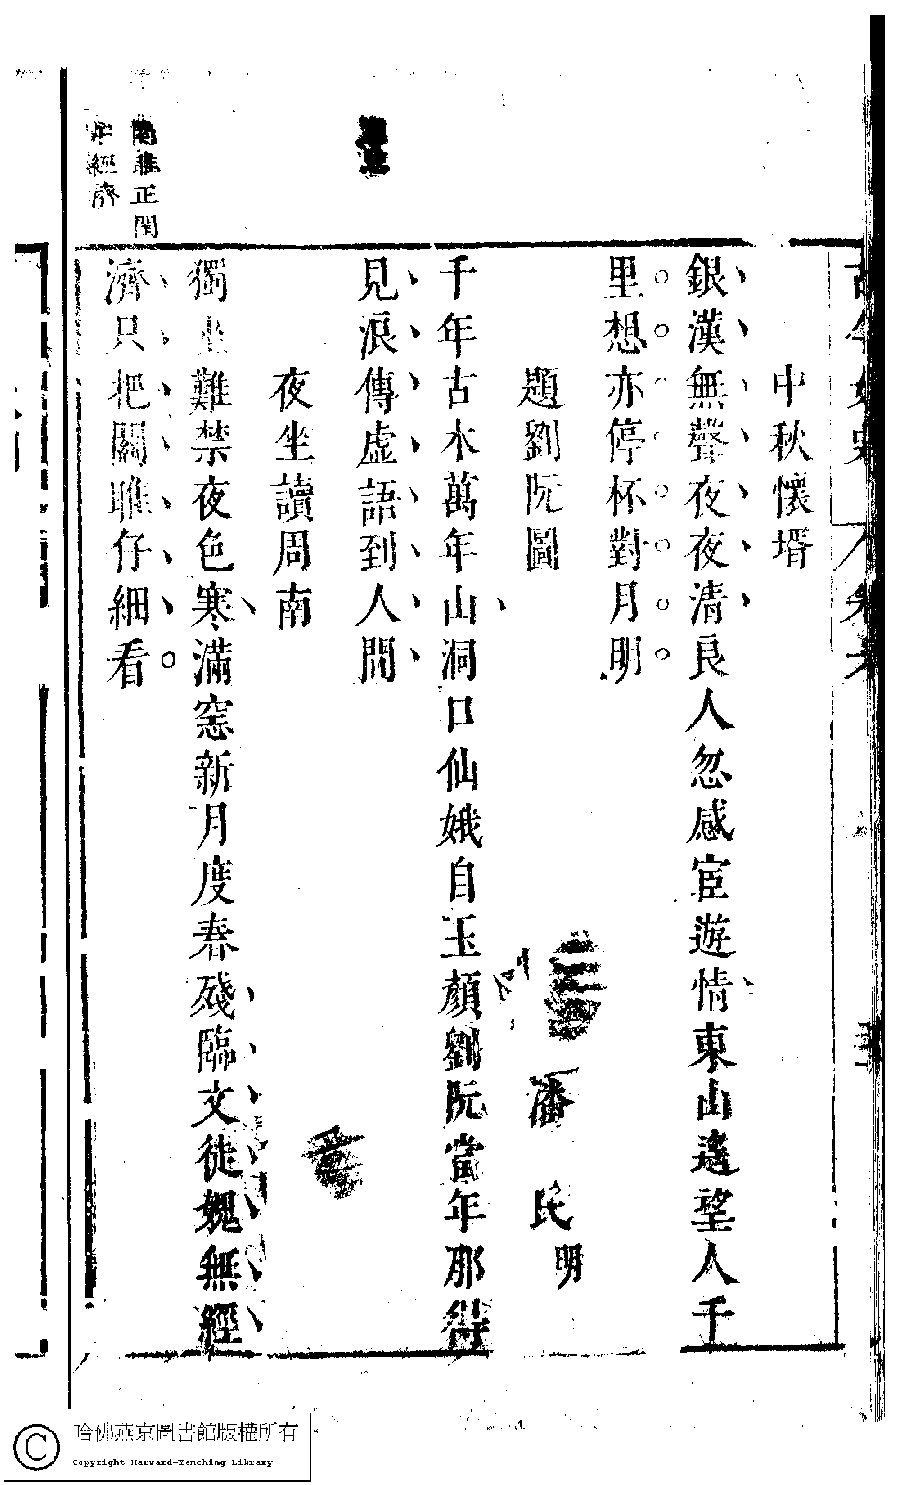 中秋懷壻
銀漢無聲夜夜清良人忽感宦遊情東山遙望人千
里想亦停杯對月明
題劉阮圖
潘氏明
千年古木萬年山洞口仙娥自玉顏劉阮當年那得
見浪傳虛語到人間
夜坐讀周南
獨坐難禁夜色寒滿窓新月度春殘臨文徒媿無經
濟只把關雎仔細看
關雎正閨
中經濟
哈佛燕京圖書館版權所有
Copyright Harvard-Yenching Library